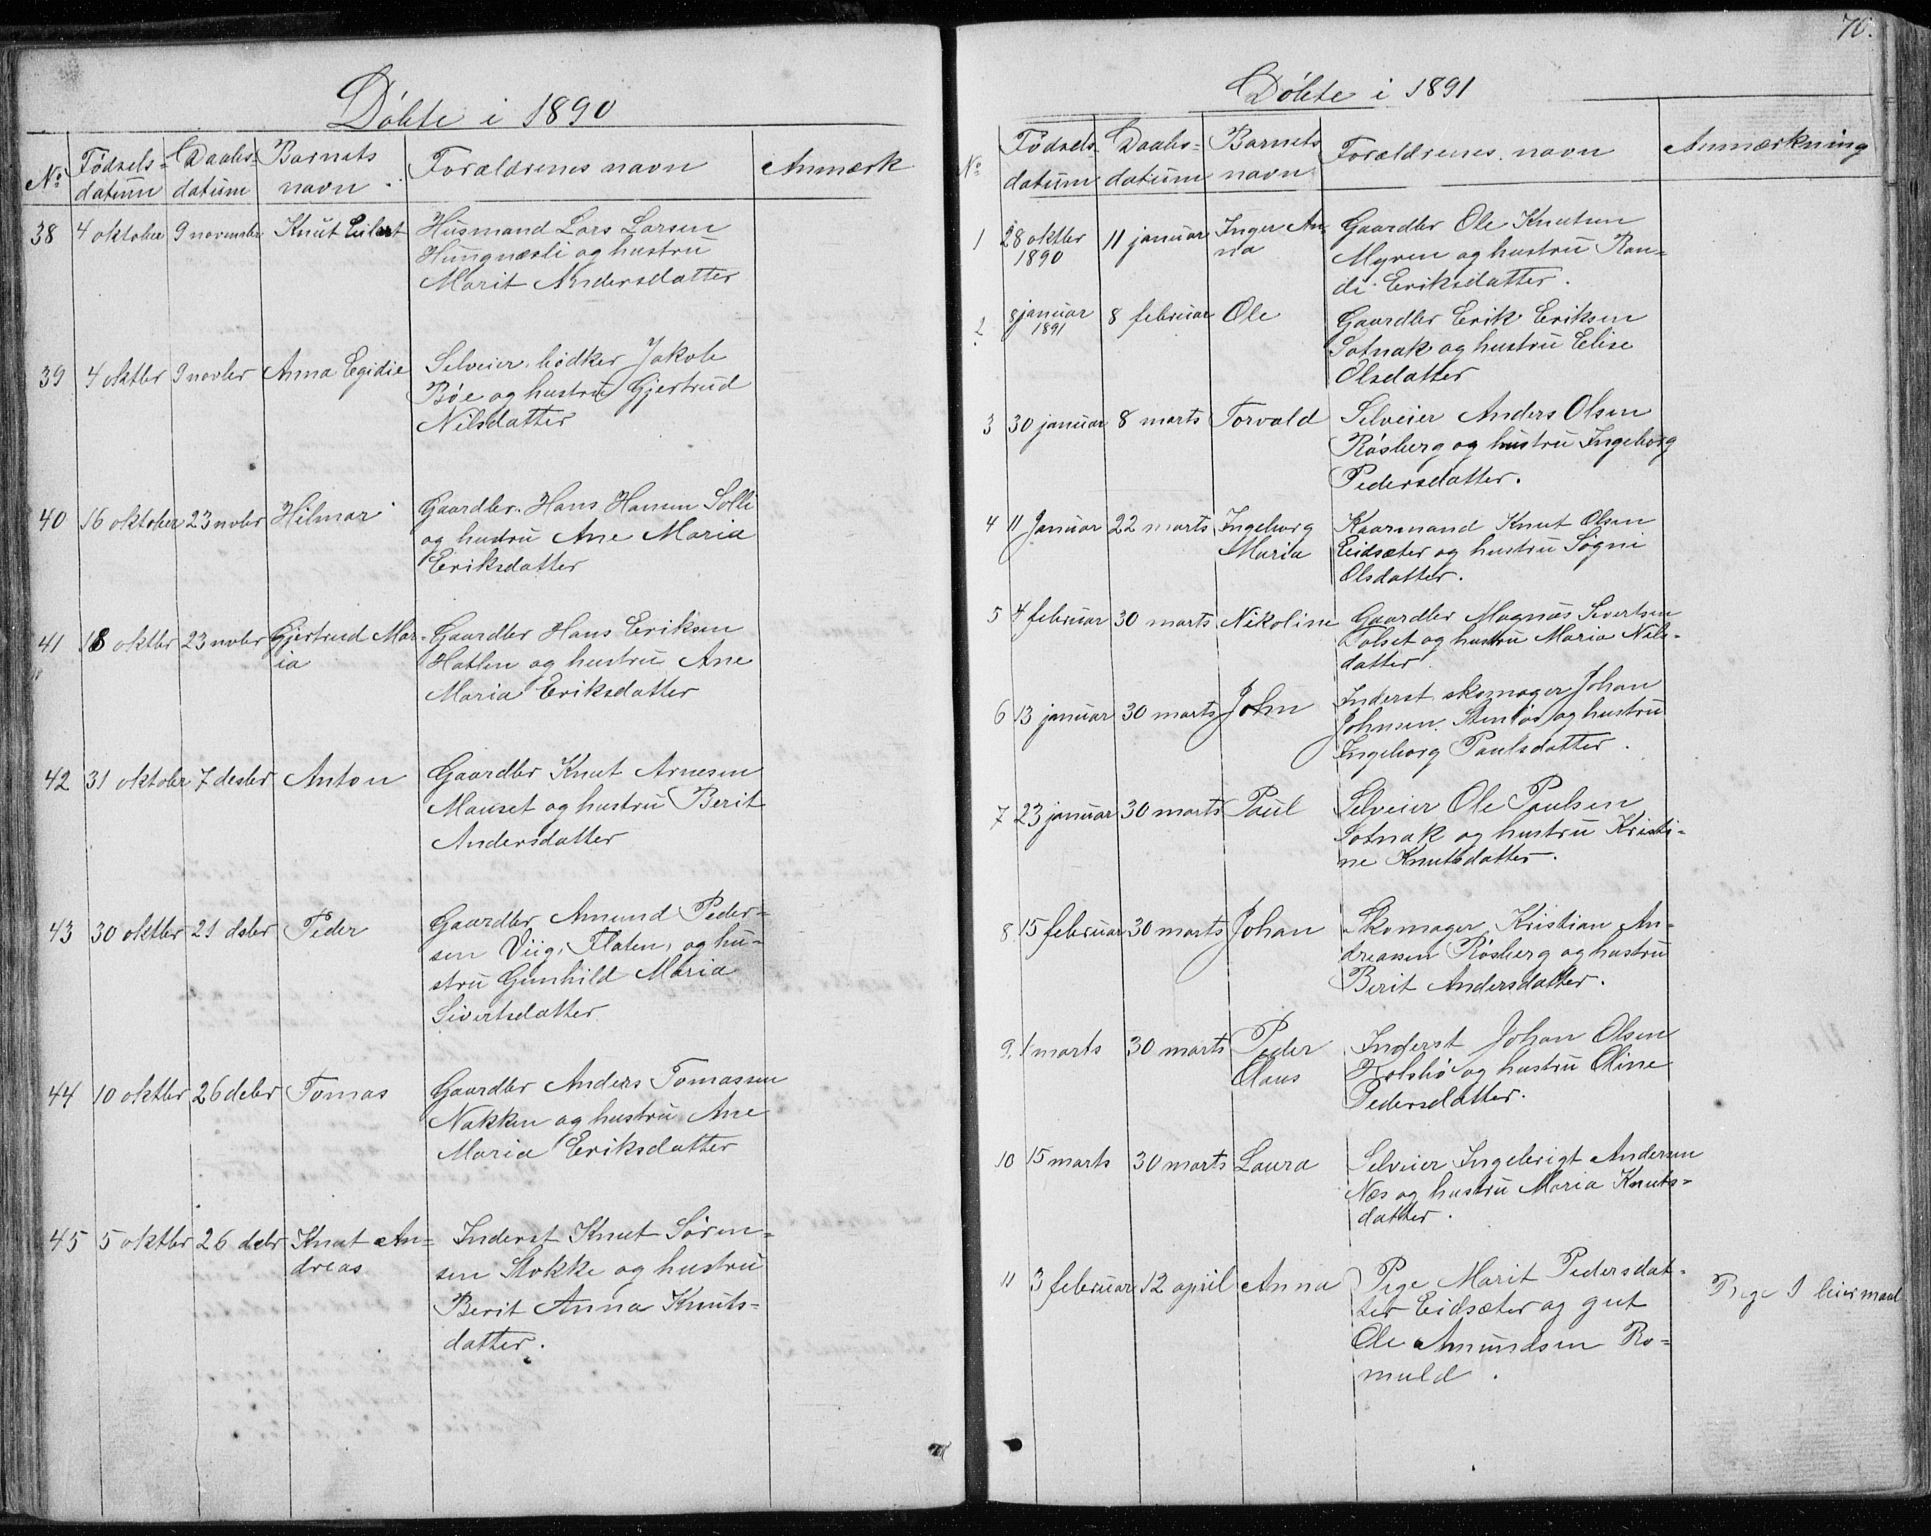 Döbte i 1890
No
Födsels-
datum
Daabs-
datum
Barnets
navn.
Forældrenes navn
Anmærk
38 4 oktober 9 november Knut Eilert Husmand Lars Larsen
Hungnæsli og hustru
Marit Andersdatter
39 4 oktbr 9 novbr Anna Egidie Selveier, bödker Jakob
Böe og hustru Gjertrud
Nilsdatter
40 16 oktober 23 nobr Hilmar Gaardbr. Hans Hansen Solli
og hustru Ane Maria
Eriksdatter
41 18 oktbr 23 nobr Gjertrud Mar- Gaardbr Hans Eriksen
ia Hatlen og hustru Ane
Maria Eriksdatter
42 31 oktober 7 desbr Anton Gaardbr Knut Arnesen
Mauset og hustru Berit
Andersdatter
43 30 oktbr 21 dsbr Peder Gaardbr Amund Peder-
sen Viig, Flaten, og hu-
stru Gunhild Maria
Sivertsdatter
44 10 oktbr 26 debr Tomas Gaardbr Anders Tomassen
Nakken og hustru Ane
Maria Eriksdatter
45 5 oktbr 26 debr Knut An- Inderst Knut Sören-
dreas sen Stokke og hustru
Berit Anna Knuts-
datter.
70.
Döbte i 1891
No
Födsels-
datum
Daabs-
datum
Barnets
navn
Forældrenes navn
Anmærkning
1 28 oktber 11 januar Inger An- Gaardbr Ole Knutsen
1890 na Myren og hustru Ran-
di Eriksdatter.
2 8 januar 8 februar Ole Gaardbr Erik Eriksen
1891 Sotnak og hustru Elise
Olsdatter
3 30 januar 8 marts Torvald Selveier Anders Olsen
Rösberg og hustru Ingeborg
Pedersdatter.
4 11 Januar 22 marts Ingeborg Kaarmand Knut Olsen
Maria Eidsæter og hustru Sögni
Olsdatter.
5 4 februar 30 marts Nikoline Gaardbr Magnus Sivertsen
Tolset og hustru Maria Nils-
datter
6 13 januar 30 marts John Inderst skomager Johan
Johnsen Stenlös og hustru
Ingeborg Paulsdatter.
7 23 januar 30 marts Paul Selveier Ole Paulsen
Sotnak og hustru Kristi-
ne Knutsdatter.
8 15 februar 30 marts Johan Skomager Kristian An-
dreassen Rösberg og hustru
Berit Andersdatter.
9. 1 marts 30 marts Peder Inderst Johan Olsen
Olaus Rolsbö og hustru Oline
Pedersdatter.
10 15 marts 30 marts Laura Selveier Ingebrigt Andersen
Næs og hustru Maria Knuts-
datter.
11 3 februar 12 april Anna Pige Marit Pedersdat-
ter Eidsæter og gut
Ole Amundsen Ro-
muld.
Bege 1 leiermaal